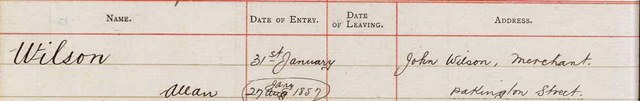 NAME. DATE OF ENTRY. DATE OF LEAVING. ADDRESS.
Wilson 31st January John Wilson, Merchant.
Allan 27 Jany 1857 Pakington Street.